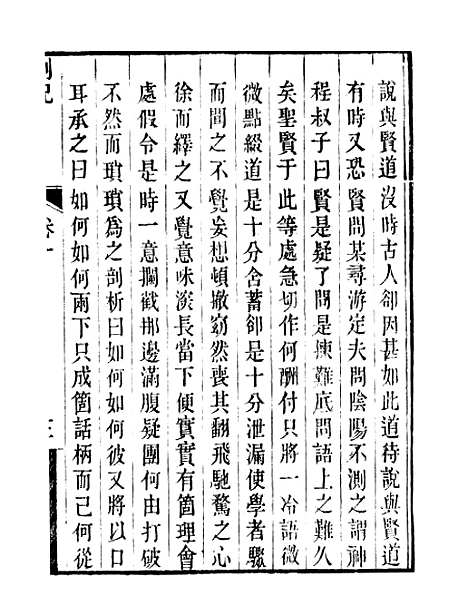 說與賢道沒時古人卻因甚如此道待說與賢道
有時又恐賢問某尋游定夫問陰陽不測之謂神
程叔子曰賢是疑了問是揀難底問語上之難久
矣聖賢于此等處急切作何酬付只將一冷語微
微點綴道是十分含蓄卻是十分泄漏使學者驟
而聞之不覺妄想頓撤窈然喪其翻飛馳騖之心
徐而繹之又覺意味深長當下便實實有箇理會
處假令是時一意攔截那邊滿腹疑團何由打破
不然而瑣瑣為之剖析曰如何如何彼又將以口
耳承之曰如何如何兩下只成箇話柄而已何從
劄記
卷十
三